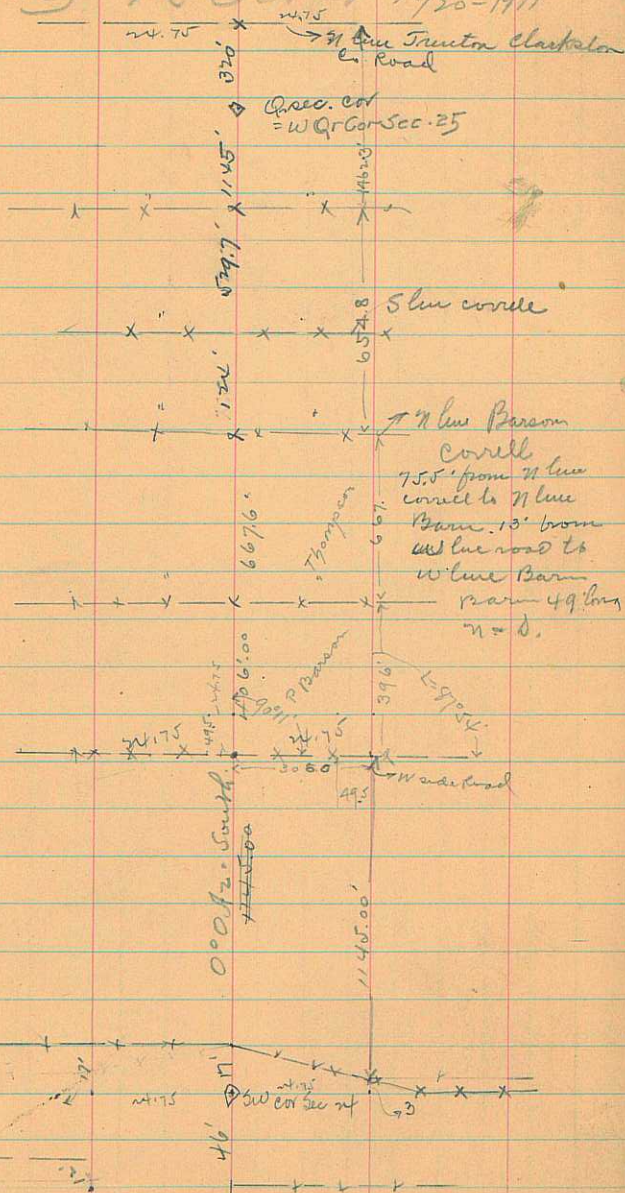 1/20-1911
24.75 24.75
N line Trenton Clarkston
Co Road
320'
Qr sec. cor
= W Qr Cor Sec. 25
1145'
1462.3'
529.7'
654.8
S line correll
122'
N line Barson
correll
75.5' from N line
correll to N line
Barn. 13' from
line road to
W line Barn
Barn 49' long
N = S.
667.6'
Thompson
667.
406.00
P Barson
90°11'
396'
49.5
24.75
24.75
24.75
30 60
W side Road
49.5
0°0 Az = South
1145.00
1145.00'
17'
17'
24.75
24.75
SW
cor Sec 24
3
46'